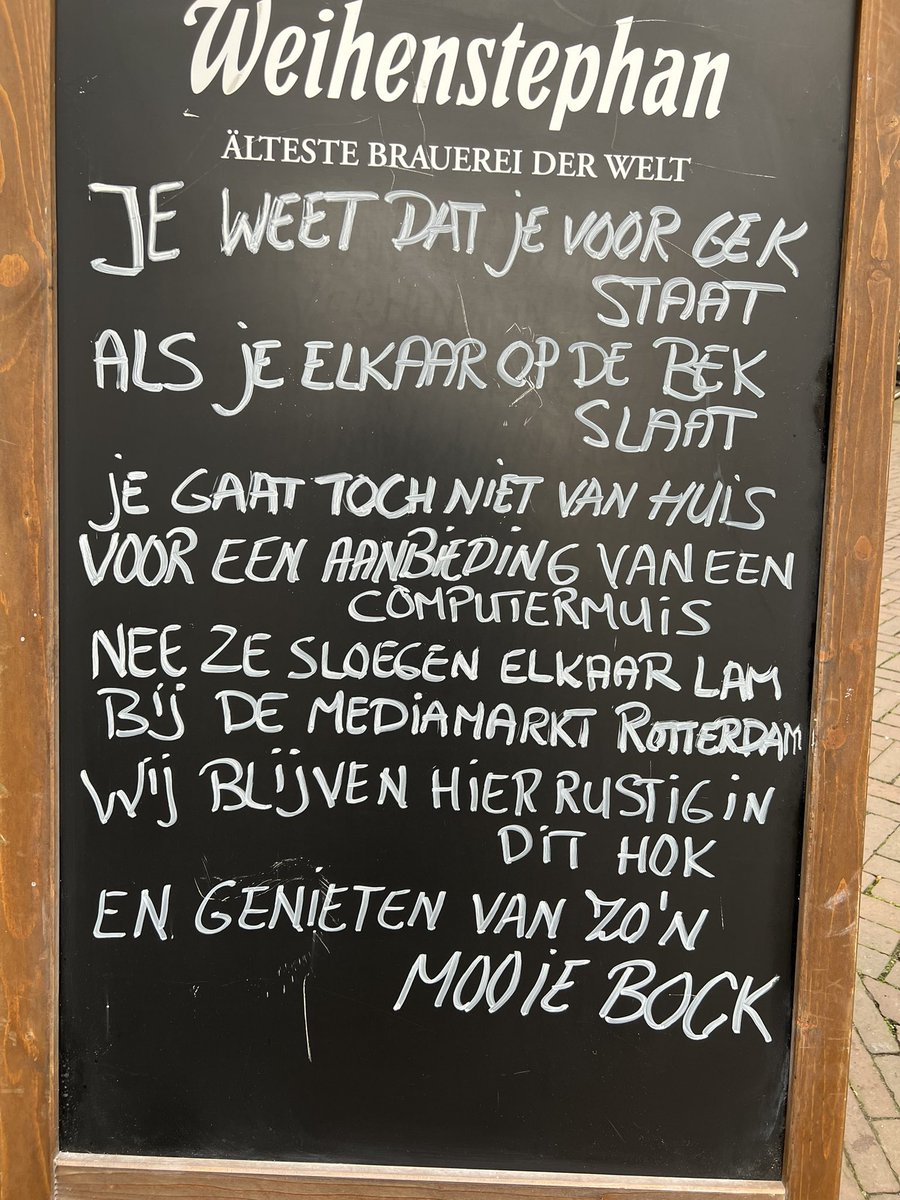 Weihenstephan
ÄLTESTE BRAUEREI DER WELT
JE WEET DAT JE VOOR GEK
STAAT
ALS JE ELKAAR OP DE BEK
SLAAT
JE GAAT TOCH NIET VAN HUIS
VOOR EEN AANBIEDING VAN EEN
COMPUTERMUIS
NEE ZE SLOEGEN ELKAAR LAM
BIJ DE MEDIAMARKT ROTTERDAM
WIJ BLIJVEN HIER RUSTIG IN
DIT HOK
EN GENIETEN VAN ZO'N
MOOIE BOCK